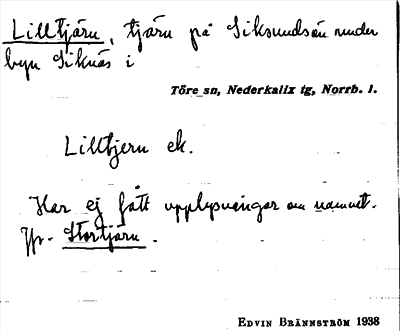 Lilltjärn, tjärn på Siksundsön under
byn Siknäs i
Töre sn, Nederkalix tg, Norrb. l.
Lilltjern ek.
Har ej fått upplysningar om namnet.
Jfr. Stortjärn.
EDVIN BRÄNNSTRÖM 1938